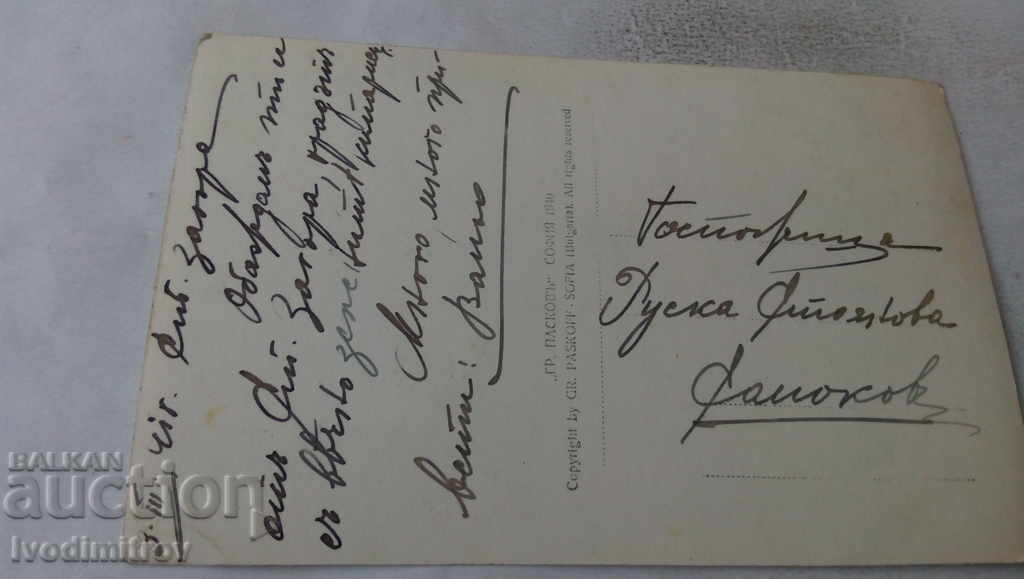 5. III. 41г. Ст. Загора
Обаждамъ ти се
отъ Ст. Загора, градътъ
съ вѣчно зелените кипариси.
Много, много при-
вети!
Ваньо
„ГР. ПАСКОВЪ“ СОФИЯ 1940
Copyright by GR. PASKOFF - SOFIA (Bulgaria). All rights reserved
Госпожица
Руска Стоянова
Самоков
BALKAN
auction
Ivodimitrov